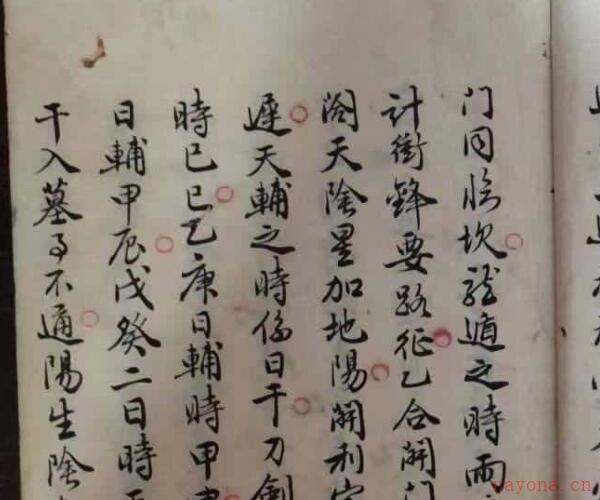 门同临坎龍遁之時雨
计衝鋒要路征乙合開门
阁天陰星加地陽開利宜
遲天輔之時係日干刀劍
時己巳乙庚日輔時甲
日輔甲辰戊癸二日時
干入墓百事不通陽生陰
nayona.cn